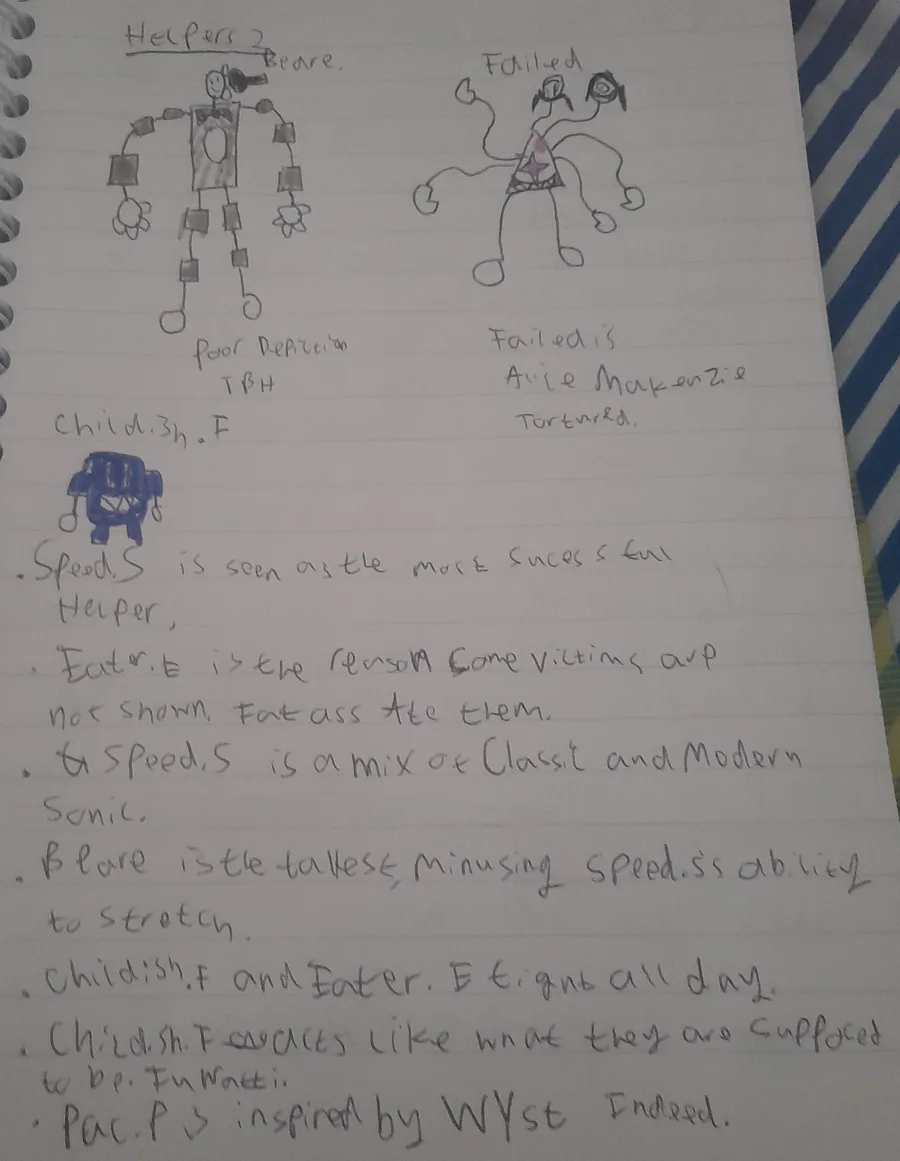 Helpers 2
Beare.
Failed
Poor Depiction
TBH
Failed is
Alice Makenzie
Tortured.
Childish.F
. Speed.S is seen as the most sucessful
Helper,
. Eater.E is the reason some victims are
not shown. Fat ass Ate them.
. Speed.S is a mix of Classic and Modern
Sonic.
. Beare is the tallest, minusing speed.s's ability
to stretch.
. Childish.F and Eater.E fight all day.
. Childish.F acts like what they are supposed
to be.
. Pac.P is inspired by WYst Indeed.